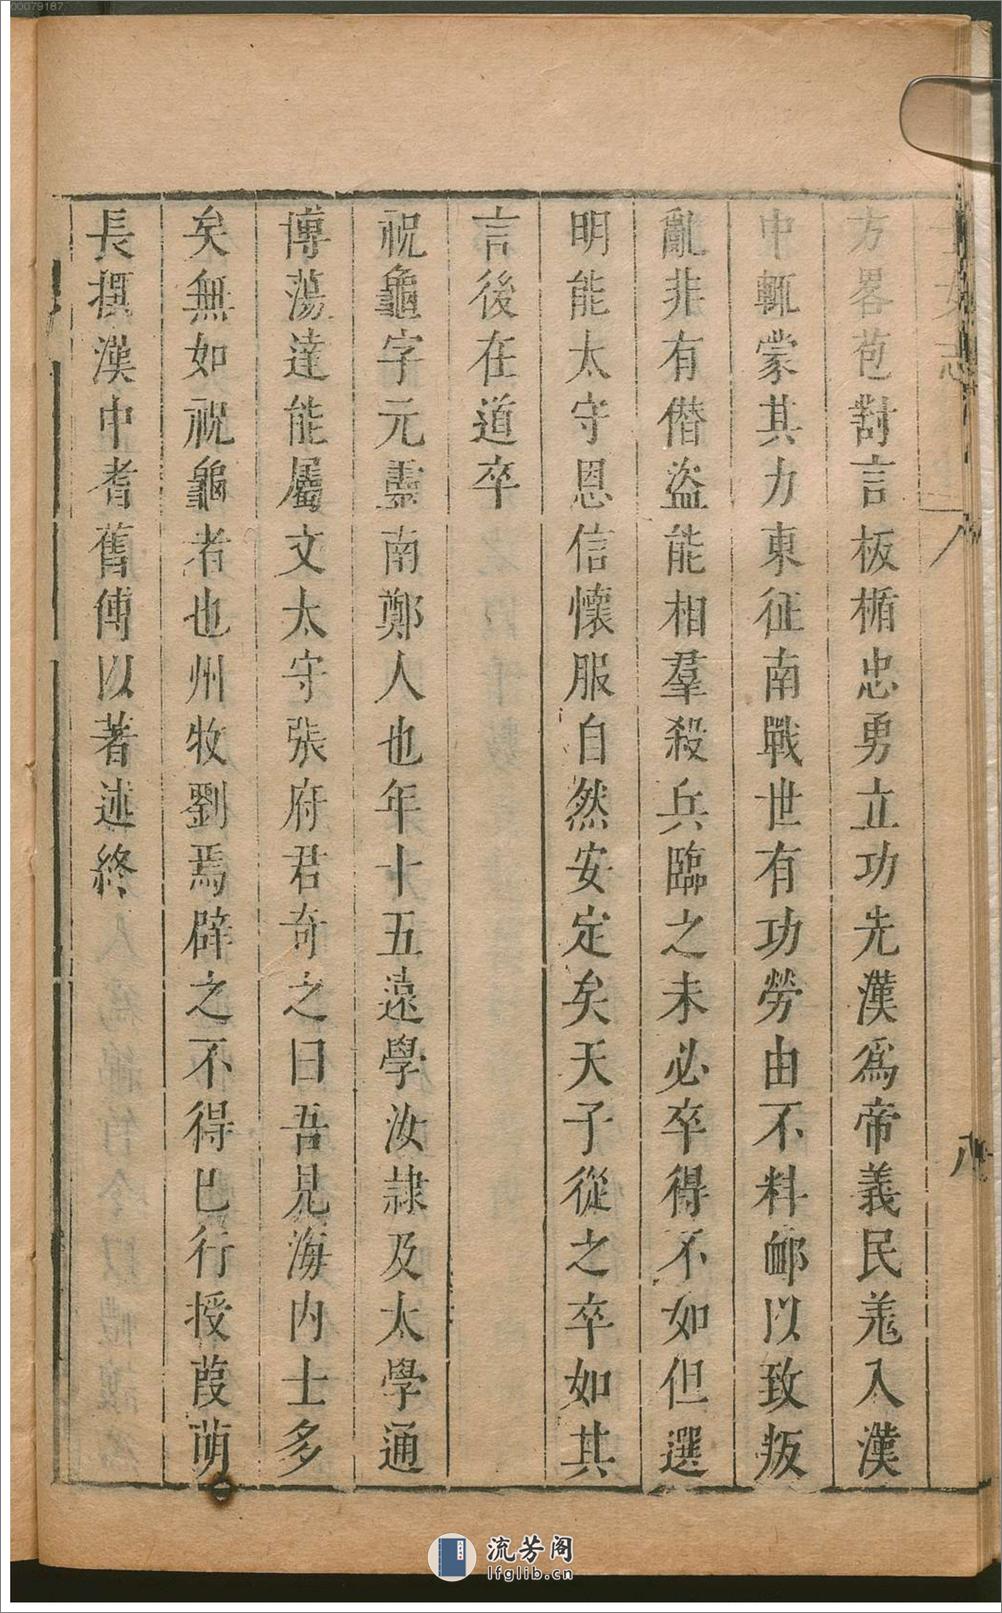 00079187
士女志
八
八
方畧苞對言板楯忠勇立功先漢爲帝義民羌入漢
中輒蒙其力東征南戰世有功勞由不料䘏以致叛
亂非有僣盜能相羣殺兵臨之未必卒得不如但選
明能太守恩信懷服自然安定矣天子從之卒如其
言後在道卒
祝龜字元靈南鄭人也年十五遠學汝隷及太學通
博蕩達能屬文太守張府君奇之曰吾見海内士多
矣無如祝龜者也州牧劉焉辟之不得已行授葭萌
長撰漢中耆舊傳以著述終
流芳阁
lfglib.cn